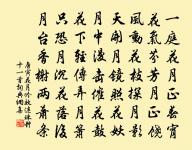 一庭花月正春宵
花氣芬芳月正饒
風動花枝探月影
天開月鏡照花妖
月中漫擊催花鼓
花下輕傳弄月簫
只恐月沉花落後
月台香榭兩蕭條
唐寅花月吟效連珠體
十一首詞典網集